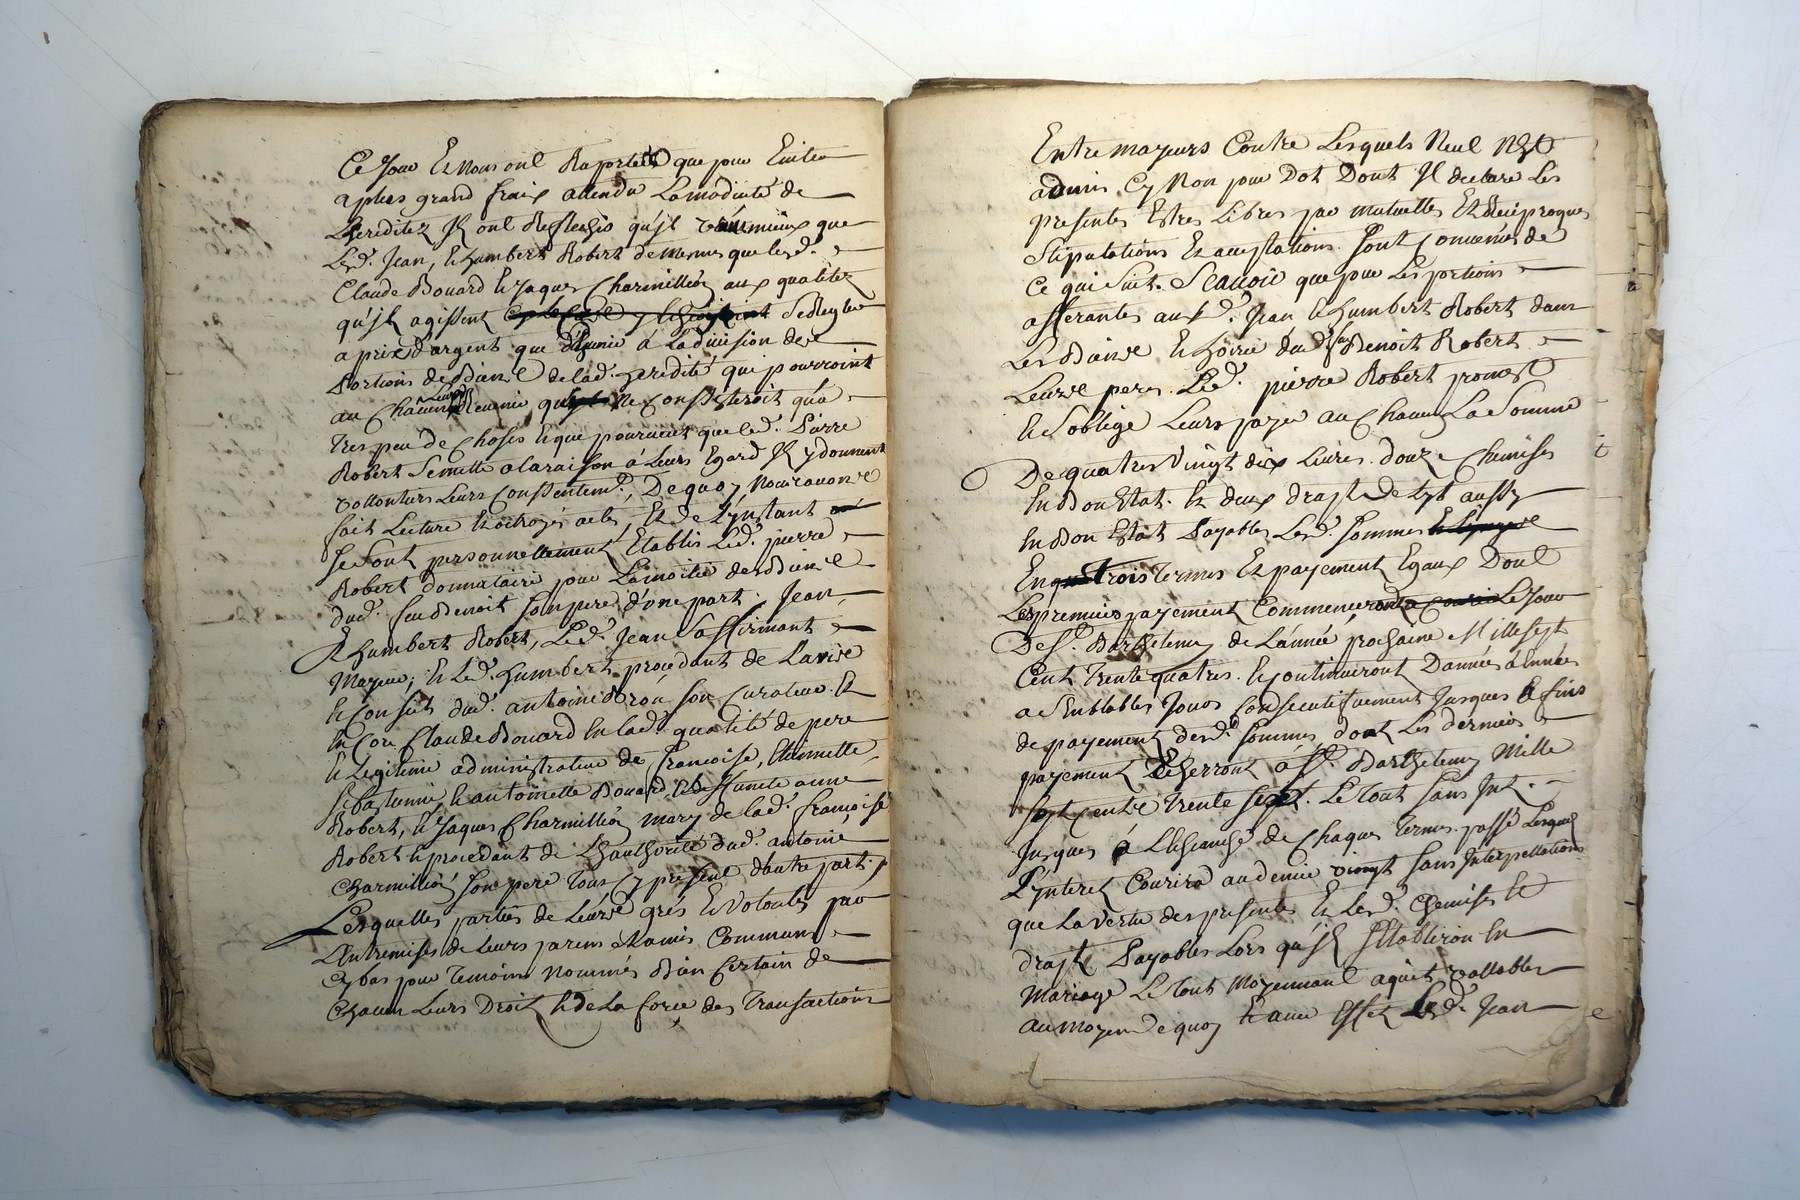 Ce Jour Et Nous ont Raportés que pour Eviter
a plus grand fraix attendu La modicité de
Lheridité Il ont Reflechis qu'jl vau mieux que
Lesd. Jean, Et humbert Robert de mesmes que lesd.
Claude Bouard Et Jaques Charmillion aux qualitez
qu'jls agissent se Regler
a prix d'argent que de venir à La division des
Portions de Biens de lad. heridité qui pourroint
au Châcun Leurs Revenir qui ne Consisteroit qu'a
Tres peu de Choses Et que pourveut que led. Pierre
Robert se mette a la raison à Leurs Egard Il y donnent
vollontiers Leurs Consentemt., De quoy Nous avons
fait Lecture Et octroyés actes, Et de L'jnstant
se sont personnellement Etablis Led. pierre
Robert donnataire pour La moitié des Biens
dud. feu Benoit son pere d'une part. Jean,
Et humbert Robert, Led. Jean affirmant
Majeur, Et Led. humbert procedant de L'avis
Et Conseil dud. antoine son Curateur Et
Encore Claude Bouard En lad. qualité de pere
Et Legitime administrateur de francoise, Etiennette
sebastienne, Et antoinette Bouard Et de deffuncte anne
Robert, Et Jaques Charmillion mary de lad. françoise
Robert Et procedant de L'hauthorité dud. antoine
Charmillion son pere Tous Cy present d'autre part.
Lesquelles parties de Leurs grés Et Volontés par
L'Entremises de Leurs parens Et amis Communs
Cy bas pour Temoins Nommés Bien Certain de
Chacun Leurs Droit Et de La force des Transactions
Entre majeurs Contre Lesquels Neul N'Est
admis Cy Non pour Dot Dont Il declare Les
presentes Estres Libres par mutuelles Et Reciproques
Stipulations Et acceptations sont Convenus de
Ce qui suit. Scauoir que pour Les portions
afferantes aux d. Jean Et humbert Robert dans
Les Biens Et hoirie dud. feu Benoit Robert
Leurs pere. Led. pierre Robert promest
Et S'oblige Leurs payer au Chacun La Somme
De quatres Vingt dix Livres. douze Chemises
En Bon Etat. Et deux draps de Lyt aussy
En Bon Etat Payables Lesd. sommes
En trois Termes Et payement Egaux Dont
Les premiers payement Commenceront Le Jour
De St. Barthelemy de L'année prochaine Mille sept
Cent Trente quatres. Et Continueront D'années à Années
a semblables Jours Consecutifvement Jusques à fins
de payement desd. sommes, dont Les derniers
payement Echerront à St. Barthelemy Mille
sept Cents Trente sept. Le Tout sans Int.
Jusques à L'Echeance de Chaques Termes passé Lesquel
L'jnterest Courira au denier vingt sans Interpellations
que La Vertu des presentes Et Lesd. Chemises Et
draps Payables Lors qu'jls s'Etabliron En
Mariage Le Tout Moyennant aquit Vallables
au moyen de quoy Et avec Effet Lesd. Jean